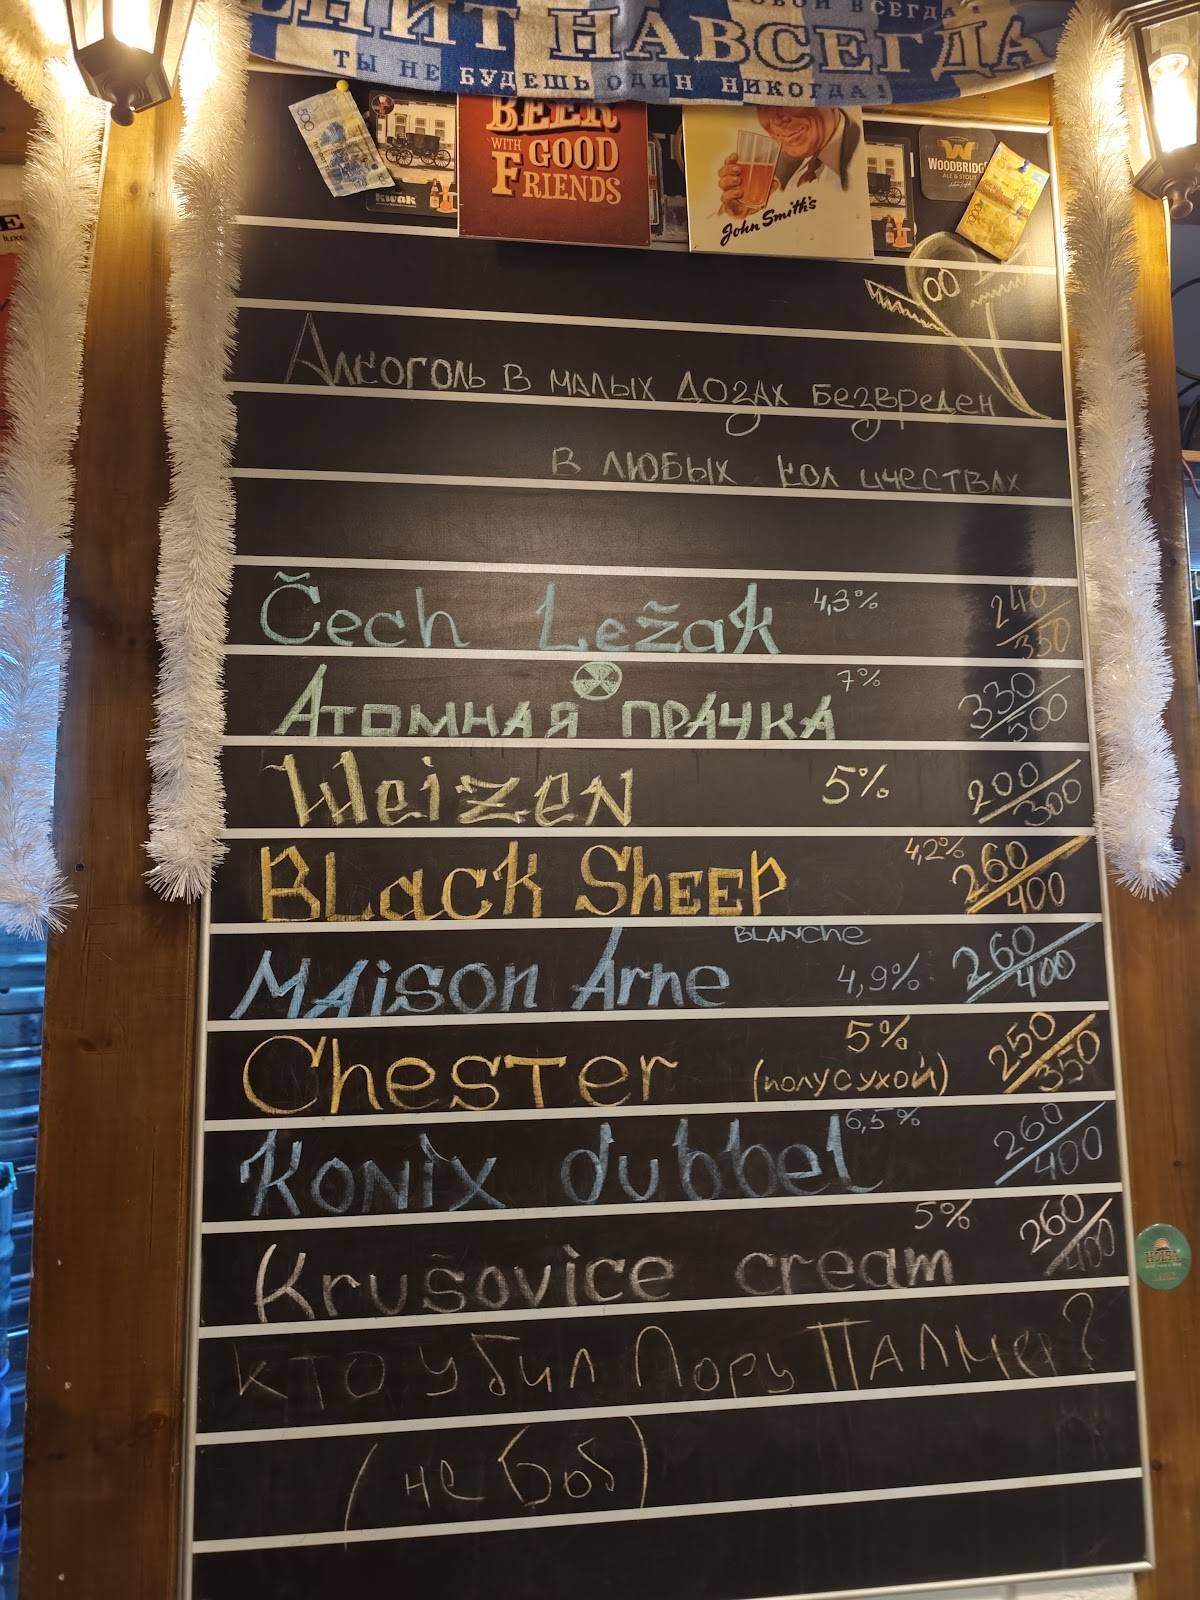 НИТ НАВСЕГДА
ТЫ НЕ БУДЕШЬ ОДИН НИКОГДА!
500
Kwak
BEER
WITH GOOD
FRIENDS
John Smith's
WOODBRIDGE
ALE & STOUT
Алкоголь в малых дозах безвреден
в любых количествах
Čech Ležak 4,3% 240/350
Атомная прачка 7% 330/500
Weizen 5% 200/300
Black Sheep 4,2% 260/400
Maison Arne Blanche 4,9% 260/400
Chester 5% (полусухой) 250/350
Konix dubbel 6,5% 260/400
Krušovice cream 5% 260/400
кто убил Лору Палмер?
(не Боб)